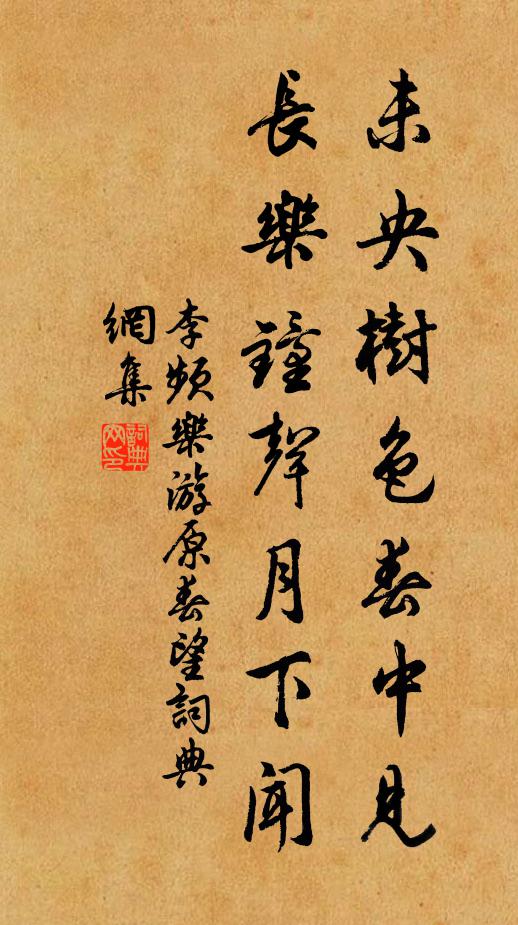 未央樹色春中見
長樂鐘聲月下聞
李頻樂游原春望詞典
網集
詞典
网印